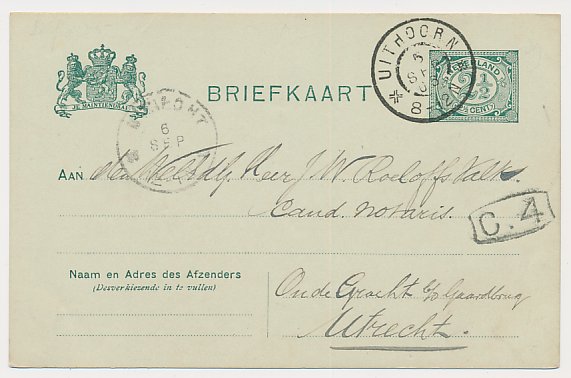 JE MAINTIENDRAI
BRIEFKAART
UITHOORN
6
SEP
8-12N
NEDERLAND
2½
CENT
MONTFOORT
6
SEP
AAN den WelEdlg Heer J. W. Roeloffs Valk
Cand. Notaris.
C.4
Naam en Adres des Afzenders
(Desverkiezende in te vullen)
Oude Gracht b/d Gaardbrug
Utrecht.